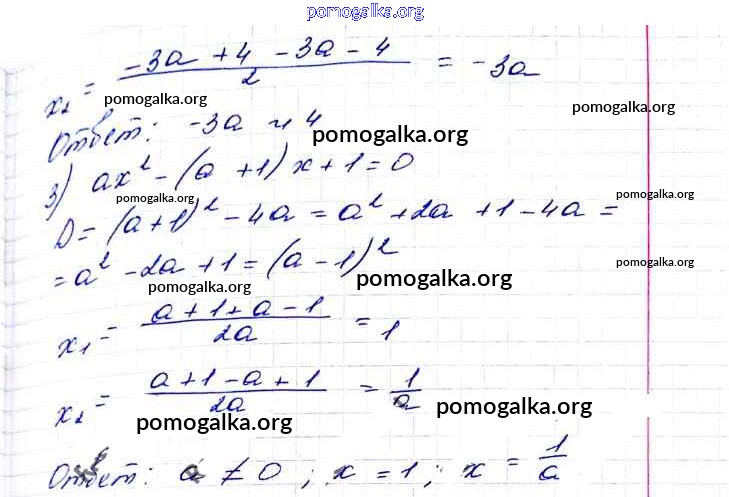 pomogalka.org
x₂ = (-3a + 4 - 3a - 4)/2 = -3a
pomogalka.org pomogalka.org
Ответ: -3a и 4
pomogalka.org
3) ax² - (a + 1)x + 1 = 0
pomogalka.org pomogalka.org
D = (a+1)² - 4a = a² + 2a + 1 - 4a =
= a² - 2a + 1 = (a - 1)²
pomogalka.org pomogalka.org pomogalka.org
x₁ = (a + 1 + a - 1)/2a = 1
x₂ = (a + 1 - a + 1)/2a = 1/a
pomogalka.org pomogalka.org
Ответ: a ≠ 0; x = 1; x = 1/a